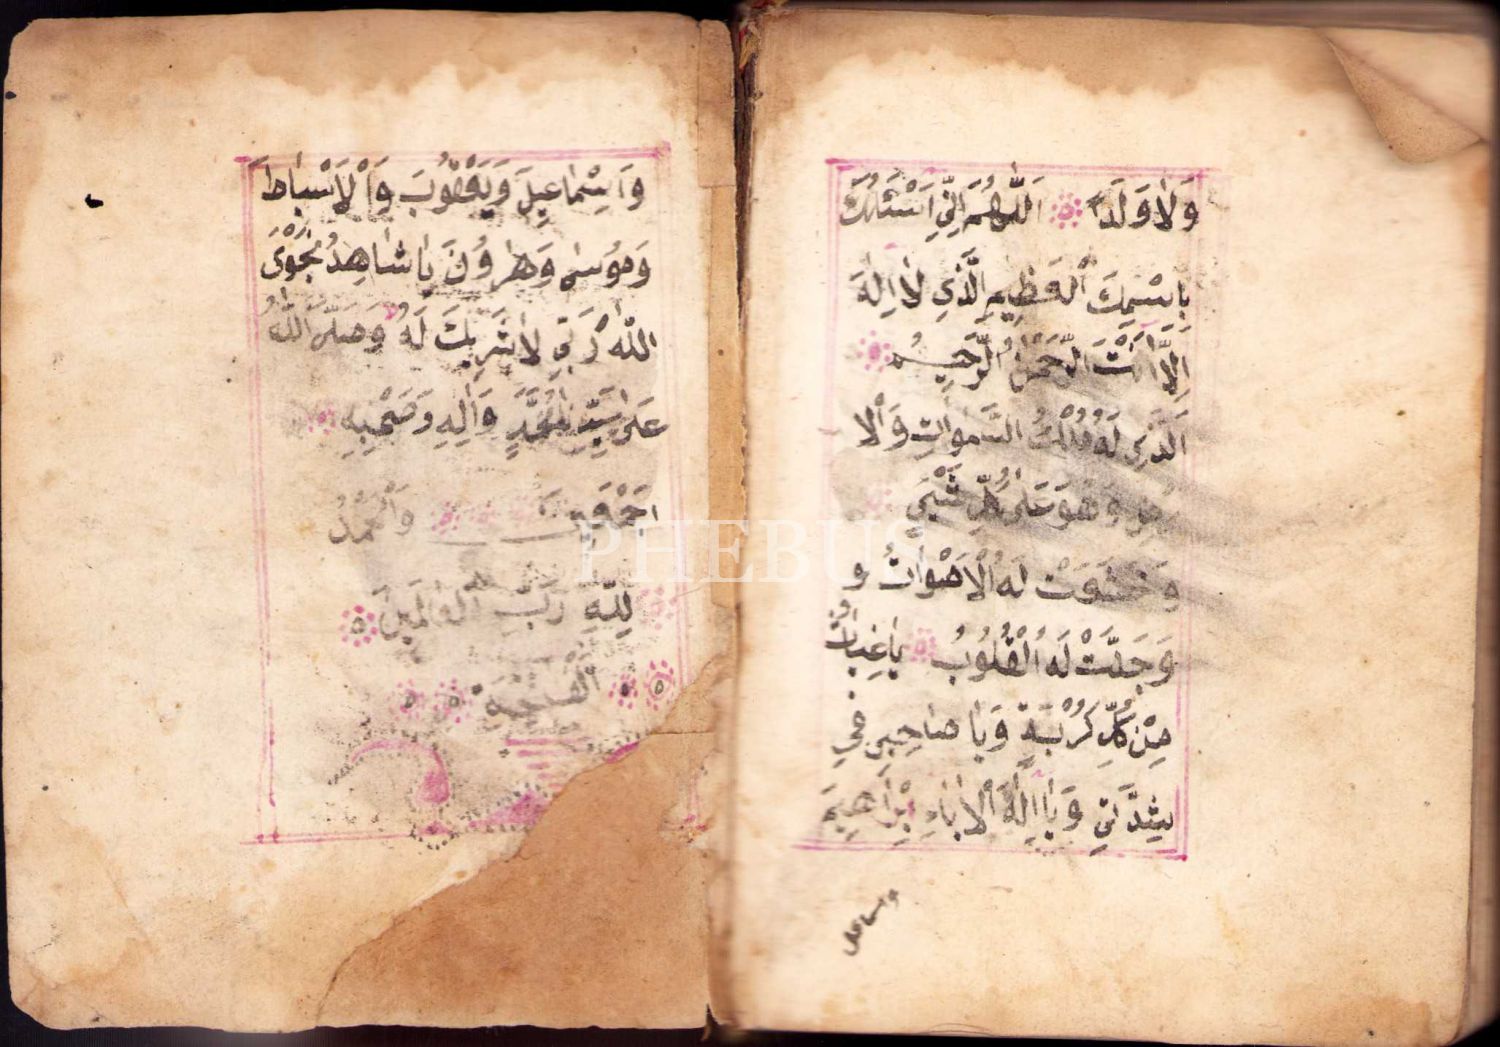 وَلٰا وَلَداً اَللّٰهُمَّ اِنِّي اَسْئَلُكَ
بِاسْمِكَ الْعَظِيمِ الَّذِي لٰا اِلٰهَ
اِلَّا اَنْتَ الرَّحْمٰنُ الرَّحِيمُ
اَلَّذِي لَهُ مُلْكُ السَّمٰوٰاتِ وَالْا
وَهُوَ عَلٰى كُلِّ شَيْءٍ
وَخَشَعَتْ لَهُ الْاَصْوٰاتُ و
وَجَلَتْ لَهُ الْقُلُوبُ يٰا غِيٰاثِي
مِنْ كُلِّ كُرْبَةٍ وَيٰا صٰاحِبِي فِي
شِدَّتِي وَيٰا اِلٰهَ اْلاٰبٰاءِ اِبْرٰاهِيمَ
واسماعيل
وَاِسْمٰاعِيلَ وَيَعْقُوبَ وَاْلاَسْبٰاطِ
وَمُوسٰى وَهٰرُونَ يٰا شٰاهِدُ نَجْوٰى
اللّٰهُ رَبِّي لٰا شَرِيكَ لَهُ وَصَلَّى اللّٰهُ
عَلٰى سَيِّدِنٰا مُحَمَّدٍ وَاٰلِهِ وَصَحْبِهِ
اَجْمَعِينَ وَالْحَمْدُ
لِلّٰهِ رَبِّ الْعٰالَمِينَ
الْفٰتِحَةِ
PHEBUS